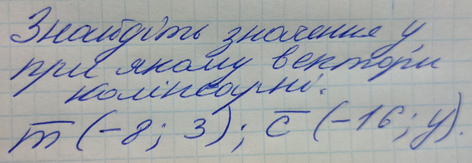 Знайдіть значення у,
при якому вектори
колінеарні.
m̅ (-8; 3); c̅ (-16; y).